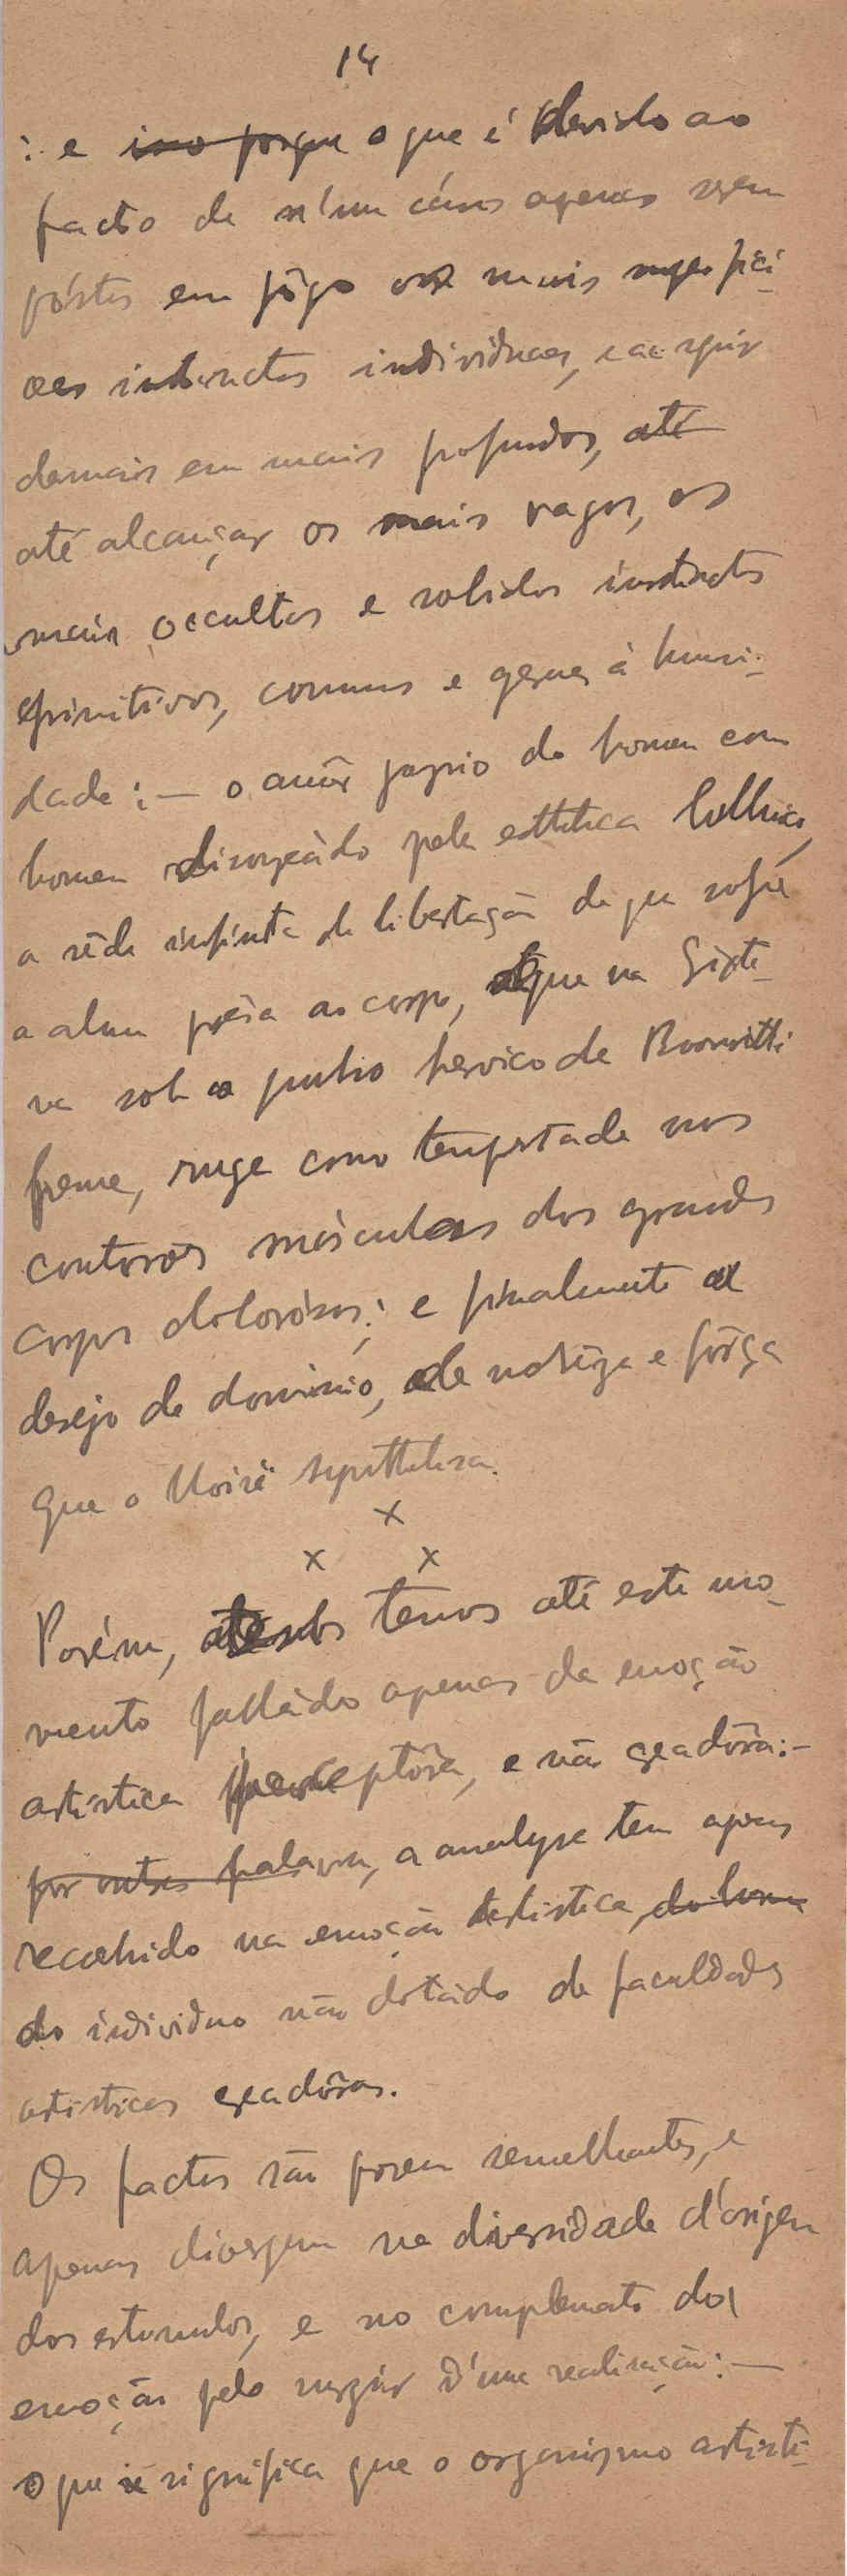 14
: e isso porque o que é devido ao
facto de n'um cáso apenas serem
póstos em jôgo os mais superfici-
aes instinctos individuaes, e a seguir
demais em mais profundos, até
até alcançar os mais vagos, os
mais occultos e solidos instinctos
primitivos, communs e geraes á humani-
dade : — o amôr proprio do homem com
homem lisongeádo pela esthetica hellenica,
a sêde infinita de libertação de que soffre
a alma prêsa ao corpo, que na Sixti-
na sob o pulso heroico de Buonarotti
freme, ruge como tempestade nos
contornos músculos dos grandes
corpos dolorósos; e finalmente o
desejo de dominio, de nobreza e fôrça
que o Moisés synthetisa.
x
x x
Porém, temos até este mo-
mento falládo apenas da emoção
artistica perceptôra, e não creadôra: –
por outras palavras, a analyse tem apenas
recahido na emoção artistica, do homem
do individuo não dotádo de faculdades
artisticas creadôras.
Os factos são porem semelhantes, e
apenas divergem na diversidade d'origem
dos estimulos, e no complemento da
emoção pelo surgir d'uma realisação: —
o que significa que o organismo artisti-